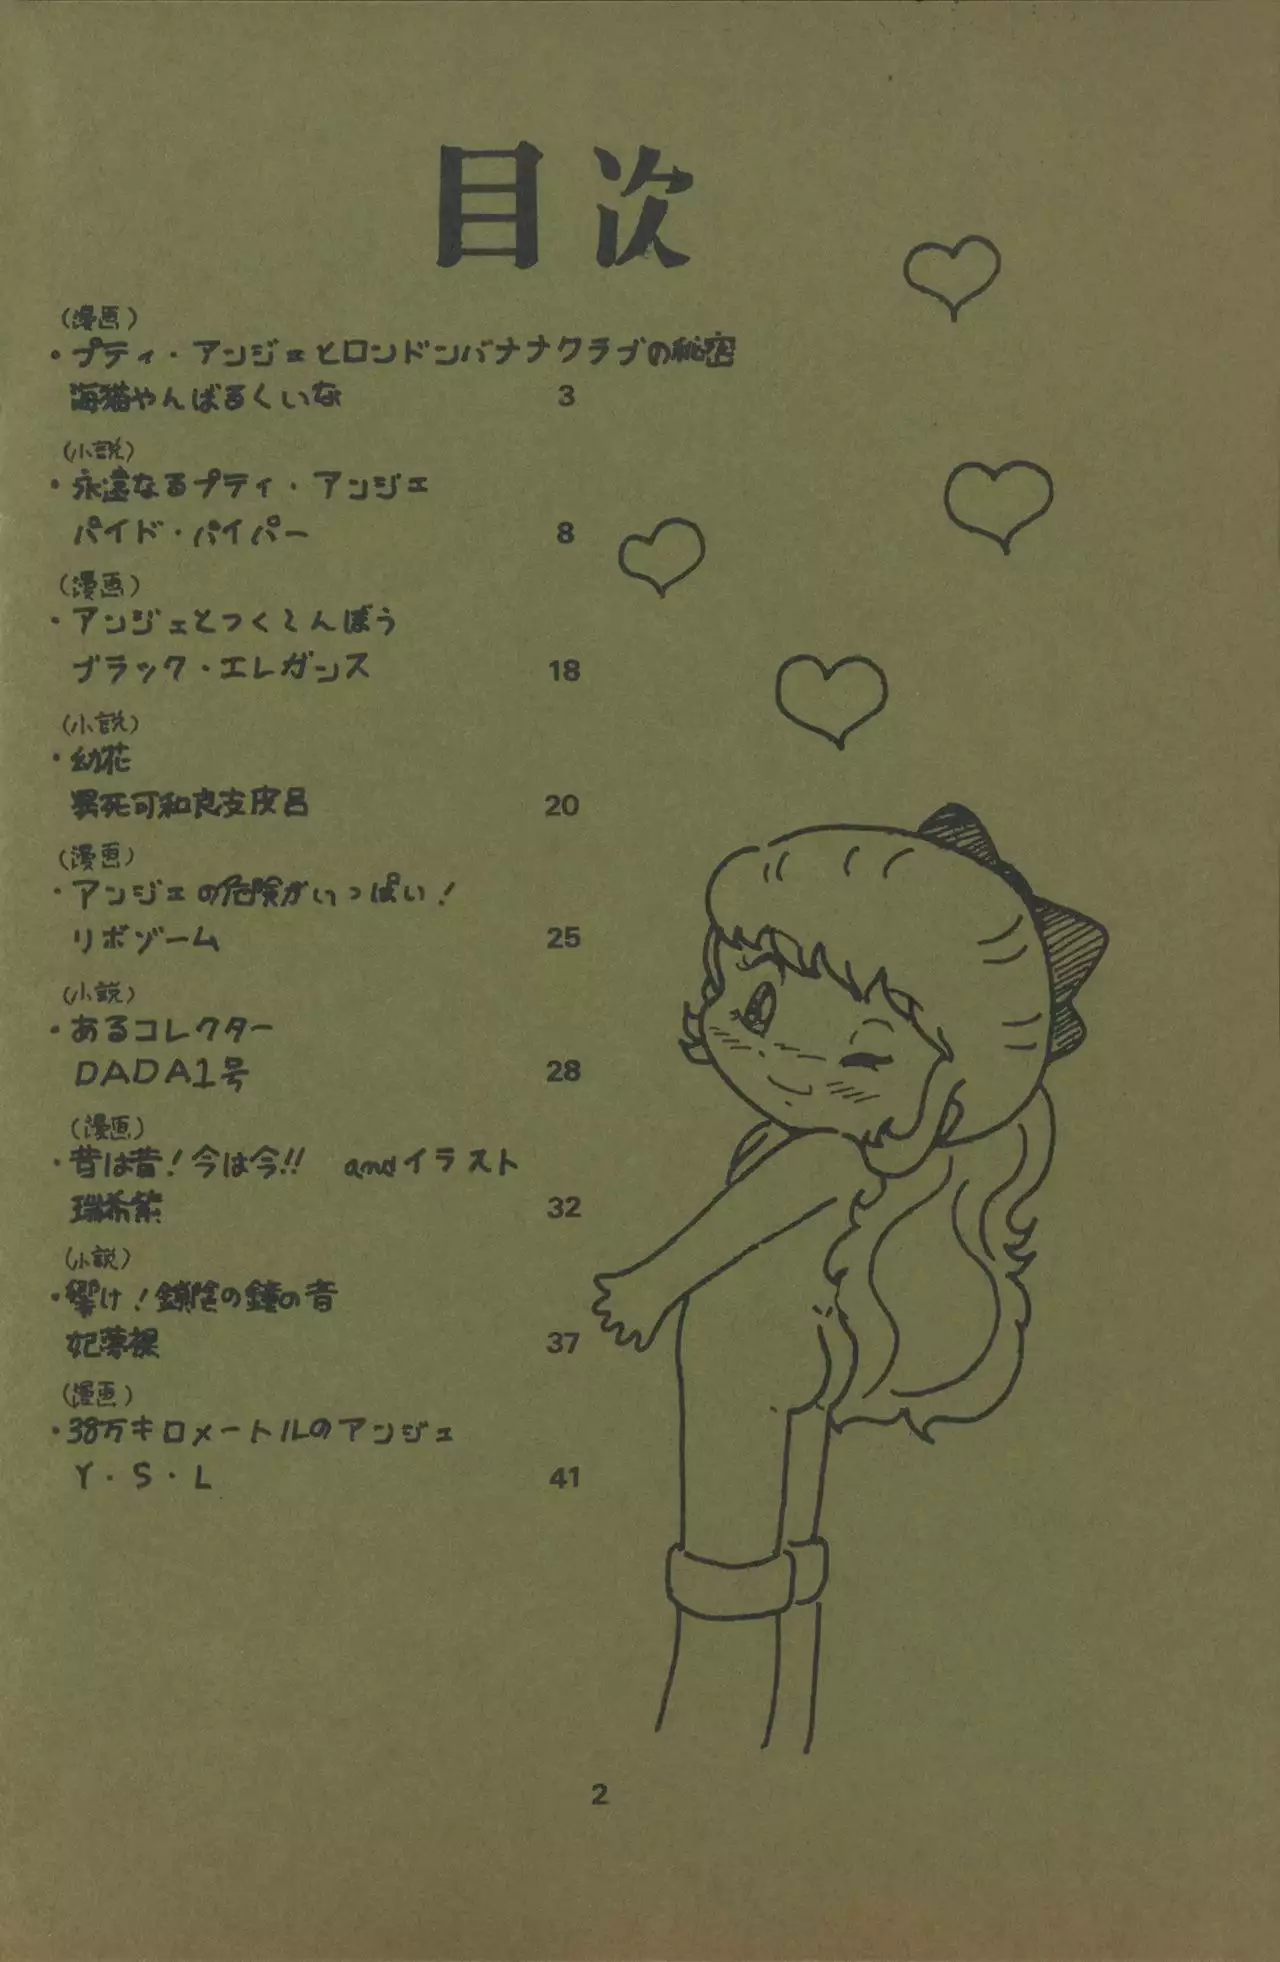 目次
(漫画)
・プティ・アンジェとロンドンバナナクラブの秘密
海猫やんばるくいな 3
(小説)
・永遠なるプティ・アンジェ
パイド・パイパー 8
(漫画)
・アンジェとつくしんぼう
ブラック・エレガンス 18
(小説)
・幼花
死可和良支皮呂 20
(漫画)
・アンジェの危険がいっぱい!
リボゾーム 25
(小説)
・あるコレクター
DADA1号 28
(漫画)
・昔は昔!今は今!! andイラスト
瑞希紫 32
(小説)
・響け!鎖陰の鐘の音
妃夢裸 37
(漫画)
・38万キロメートルのアンジェ
Y・S・L 41
2